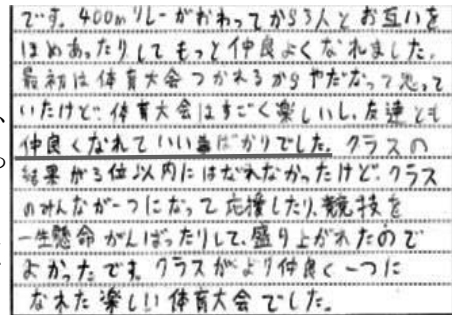 です。400mリレーがおわってから3人とお互いを
ほめあったりしてもっと仲良よくなれました。
最初は体育大会つかれるからやだなって思って
いたけど、体育大会はすごく楽しいし、友達とも
仲良くなれていい事ばかりでした。クラスの
結果が3位以内にはなれなかったけど、クラス
のみんなが一つになって応援したり、競技を
一生懸命がんばったりして、盛り上がれたので
よかったです。クラスがより仲良く一つに
なれた楽しい体育大会でした。